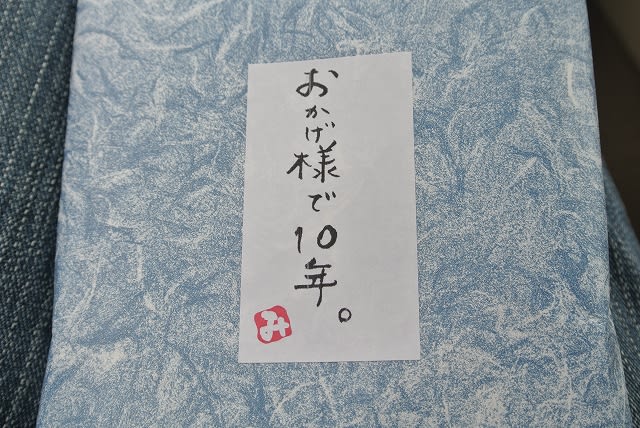 おかげ様で10年。
み